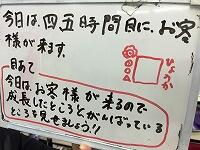 今日は、四五時間目に、お客
様が来ます。
目あて
今日は、お客様が来るので
成長したところとがんばっている
ところを見せましょう!!
ひょうか